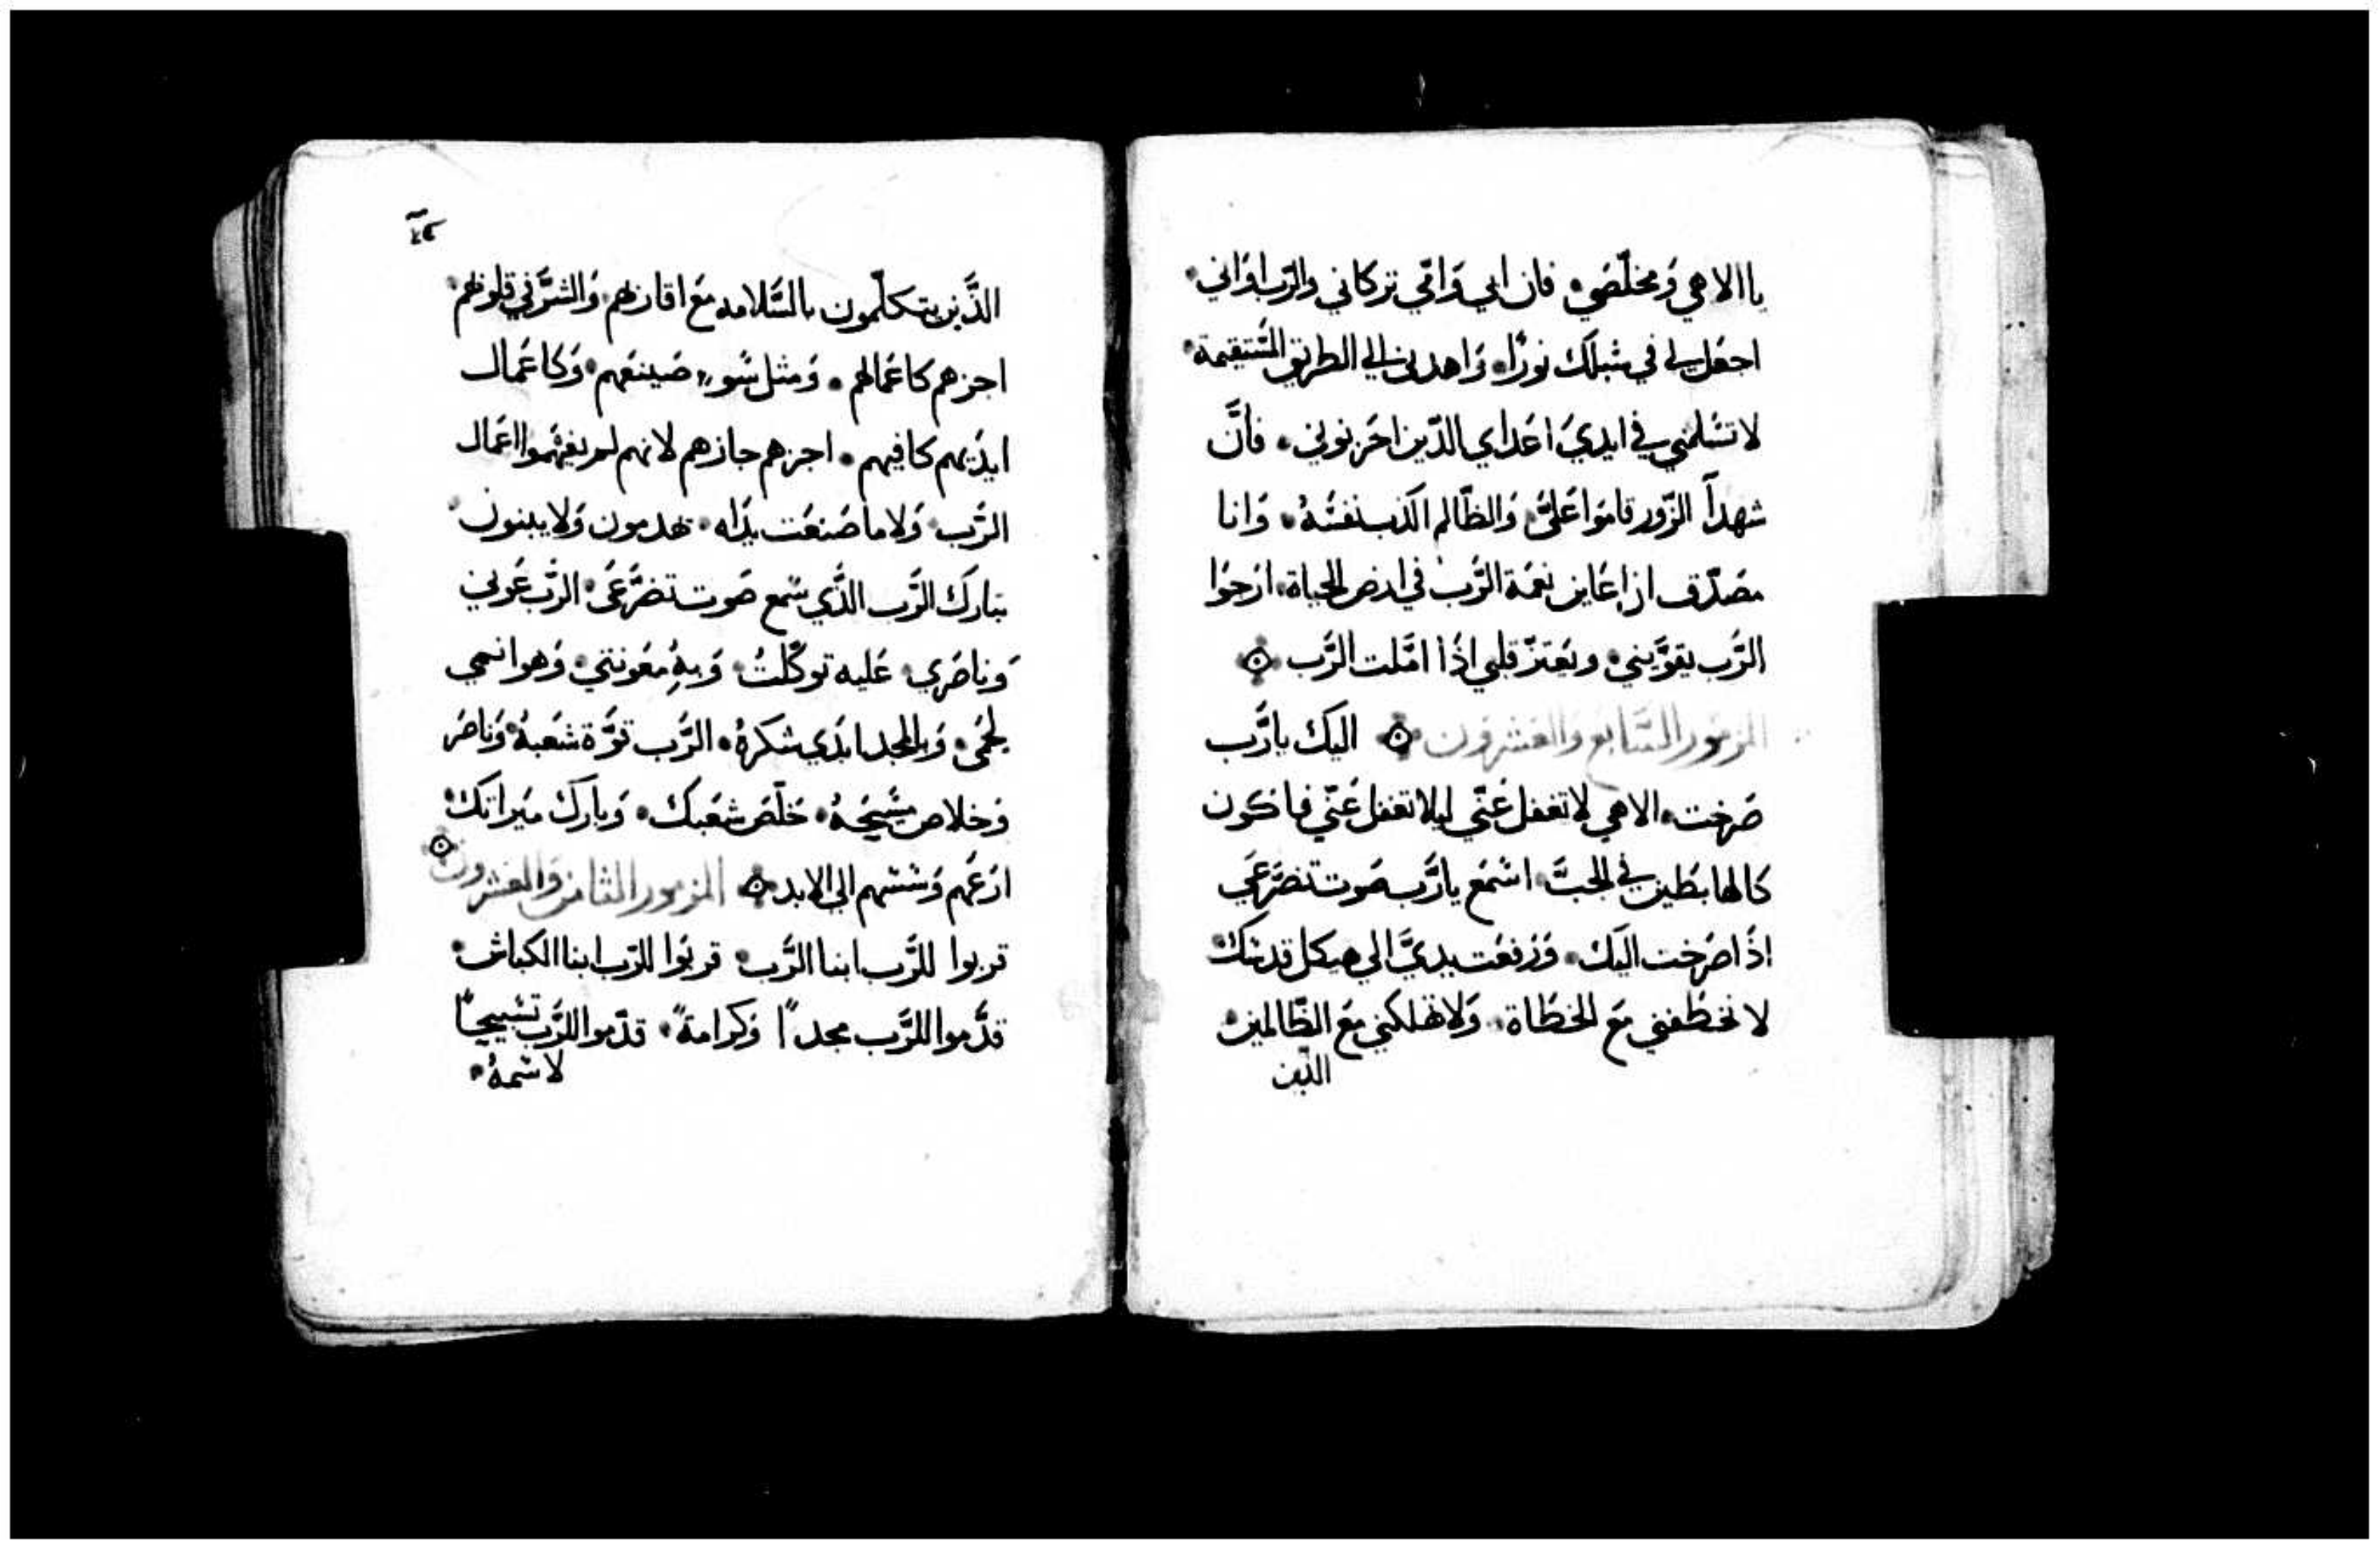 يا الاهي وَمخلّصَي فان ابي وَامّي تركاني والرّب اوَاني
اجعَل لي في سُبلك نورًا وَاهدني الي الطريق المسُتقيمة
لا تسُلمني في ايديَ اعَداي الذّين احَزنوني فانَّ
شهدآ الزّور قامَوا عَليَّ وَالظّالم اكذب نفسَهُ وَانا
مصَدّق اني اعَاين نعَمة الرَّب في ارض الحياة ارَجوا
الرَّب يقوَّيني ويعَتزّ قلبي اذَا امَّلت الرَّب
المزمَور السَّابع وَالعَشروَن اليَك يا رَّب
صَرخت الاهي لا تغفل عَنّي ليلا تغفل عَنّي فاكون
كالهابطَين في الجبّ اسَمَع يا رَّب صَوت تضرَّعَي
اذَا صَرخت اليَك وَرَفعَت يديَّ الي هيكل قدسَك
لا تخطَفني مَع الخطَاة وَلا تهَلكني مَع الظّالمين
الذّين
٤٢
الذَّين يتكلّمون بالسَّلامه مَع اقاربهم وَالشرَّ في قلوبهم
اجزهم كاعَمالهم وَمثل سُو صَنيعَهم وَكاعَمال
ايدَيهم كافيهم اجزهم جازهم لانهم لم يفهَموا اعَمال
الرَّب وَلا ما صَنعَت يدَاه تهدمون وَلا يبنون
تبارَك الرَّب الذَّي سَمع صَوت تضرَّعَي الرَّب عَوني
وَناصَري عَليه توكّلتُ وَبهِ مَعَونتي وَهو انمي
لحَمي وَبالمجد ابدَي شكرهُ الرَّب قوَّة شعَبهُ وَناصَر
وَخلاص مَسَيحَهُ خَلّصَ شعَبك وَبارَك مَيراثك
ارَعَهم وَسَسَهم الي الابد المزمور الثامَن وَالعشرون
قربوا للرَّب ابنا الرَّب قربَوا للرّب ابنا الكباش
قدَّموا للرَّب مجدًا وَكرامةً قدّموا للرَّب تسَبيحًا
لاسَمهُ